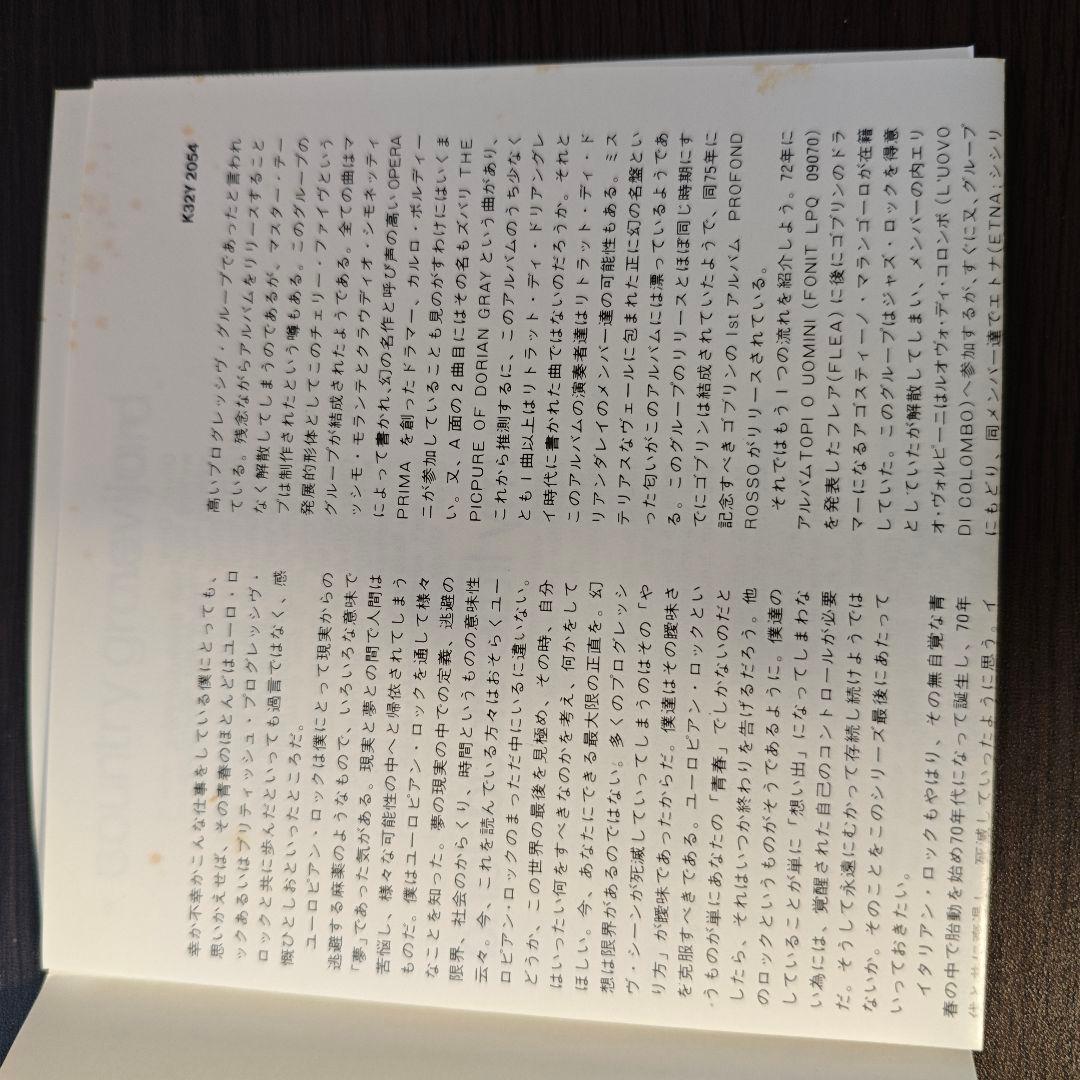 K32Y 2054
幸か不幸かこんな仕事をしている僕にとっても、
思いかえせば、その青春のほとんどはユーロ・ロ
ックあるいはブリティッシュ・プログレッシヴ・
ロックと共に歩んだといっても過言ではなく、感
慨ひとしおといったところだ。
ユーロピアン・ロックは僕にとって現実からの
逃避する麻薬のようなもので、いろいろな意味で
「夢」であった気がある。現実と夢との間で人間は
苦悩し、様々な可能性の中へと帰依されてしまう
ものだ。僕はユーロピアン・ロックを通して様々
なことを知った。夢の現実の中での定義、逃避の
限界、社会のからくり、時間というものの意味性
云々。今、これを読んでいる方々はおそらくユー
ロピアン・ロックのまっただ中にいるに違いない。
どうか、この世界の最後を見極め、その時、自分
はいったい何をすべきなのかを考え、何かをして
ほしい。今、あなたにできる最大限の正直を。幻
想は限界があるのではない。多くのプログレッシ
ヴ・シーンが死滅していってしまうのはその「や
り方」が曖昧であったからだ。僕達はその曖昧さ
を克服すべきである。ユーロピアン・ロックとい
うものが単にあなたの「青春」でしかないのだと
したら、それはいつか終わりを告げるだろう。他
のロックというものがそうであるように。僕達の
していることが単に「想い出」になってしまわな
い為には、覚醒された自己のコントロールが必要
だ。そうして永遠にむかって存続し続けようでは
ないか。そのことをこのシリーズ最後にあたって
いっておきたい。
イタリアン・ロックもやはり、その無自覚な青
春の中で胎動を始め70年代になって誕生し、70年
代と共に衰退し、死滅していったように思う。イ
高いプログレッシヴ・グループであったと言われ
ている。残念ながらアルバムをリリースすること
なく解散してしまうのであるが、マスター・テー
プは制作されたという噂もある。このグループの
発展的形体としてこのチェリー・ファイヴという
グループが結成されたようである。全ての曲はマ
ッシモ・モランテとクラウディオ・シモネッティ
によって書かれ、幻の名作と呼び声の高いOPERA
PRIMA を創ったドラマー、カルロ・ボルディー
ニが参加していることも見のがすわけにはいくま
い。又、A 面の 2 曲目にはその名もズバリ THE
PICPURE OF DORIAN GRAY という曲があり、
これから推測するに、このアルバムのうち少なく
とも 1 曲以上はリトラット・ディ・ドリアングレ
イ時代に書かれた曲ではないのだろうか。それと
このアルバムの演奏者達はリトラット・ディ・ド
リアングレイのメンバー達の可能性もある。ミス
テリアスなヴェールに包まれた正に幻の名盤とい
った匂いがこのアルバムには漂っているようであ
る。このグループのリリースとほぼ同じ時期にす
でにゴブリンは結成されていたようで、同75年に
記念すべきゴブリンの 1st アルバム PROFOND
ROSSOがリリースされている。
それではもう 1 つの流れを紹介しよう。72年に
アルバムTOPI O UOMINI (FONIT LPQ 09070)
を発表したフレア(FLEA)に後にゴブリンのドラ
マーになるアゴスティーノ・マランゴーロが在籍
していた。このグループはジャズ・ロックを得意
としていたが解散してしまい、メンバーの内エリ
オ・ヴォルピーニはルオヴォ・ディ・コロンボ (L'UOVO
DI COLOMBO)へ参加するが、すぐに又、グループ
にもどり、同メンバー達でエトナ(ETNA；シシリ